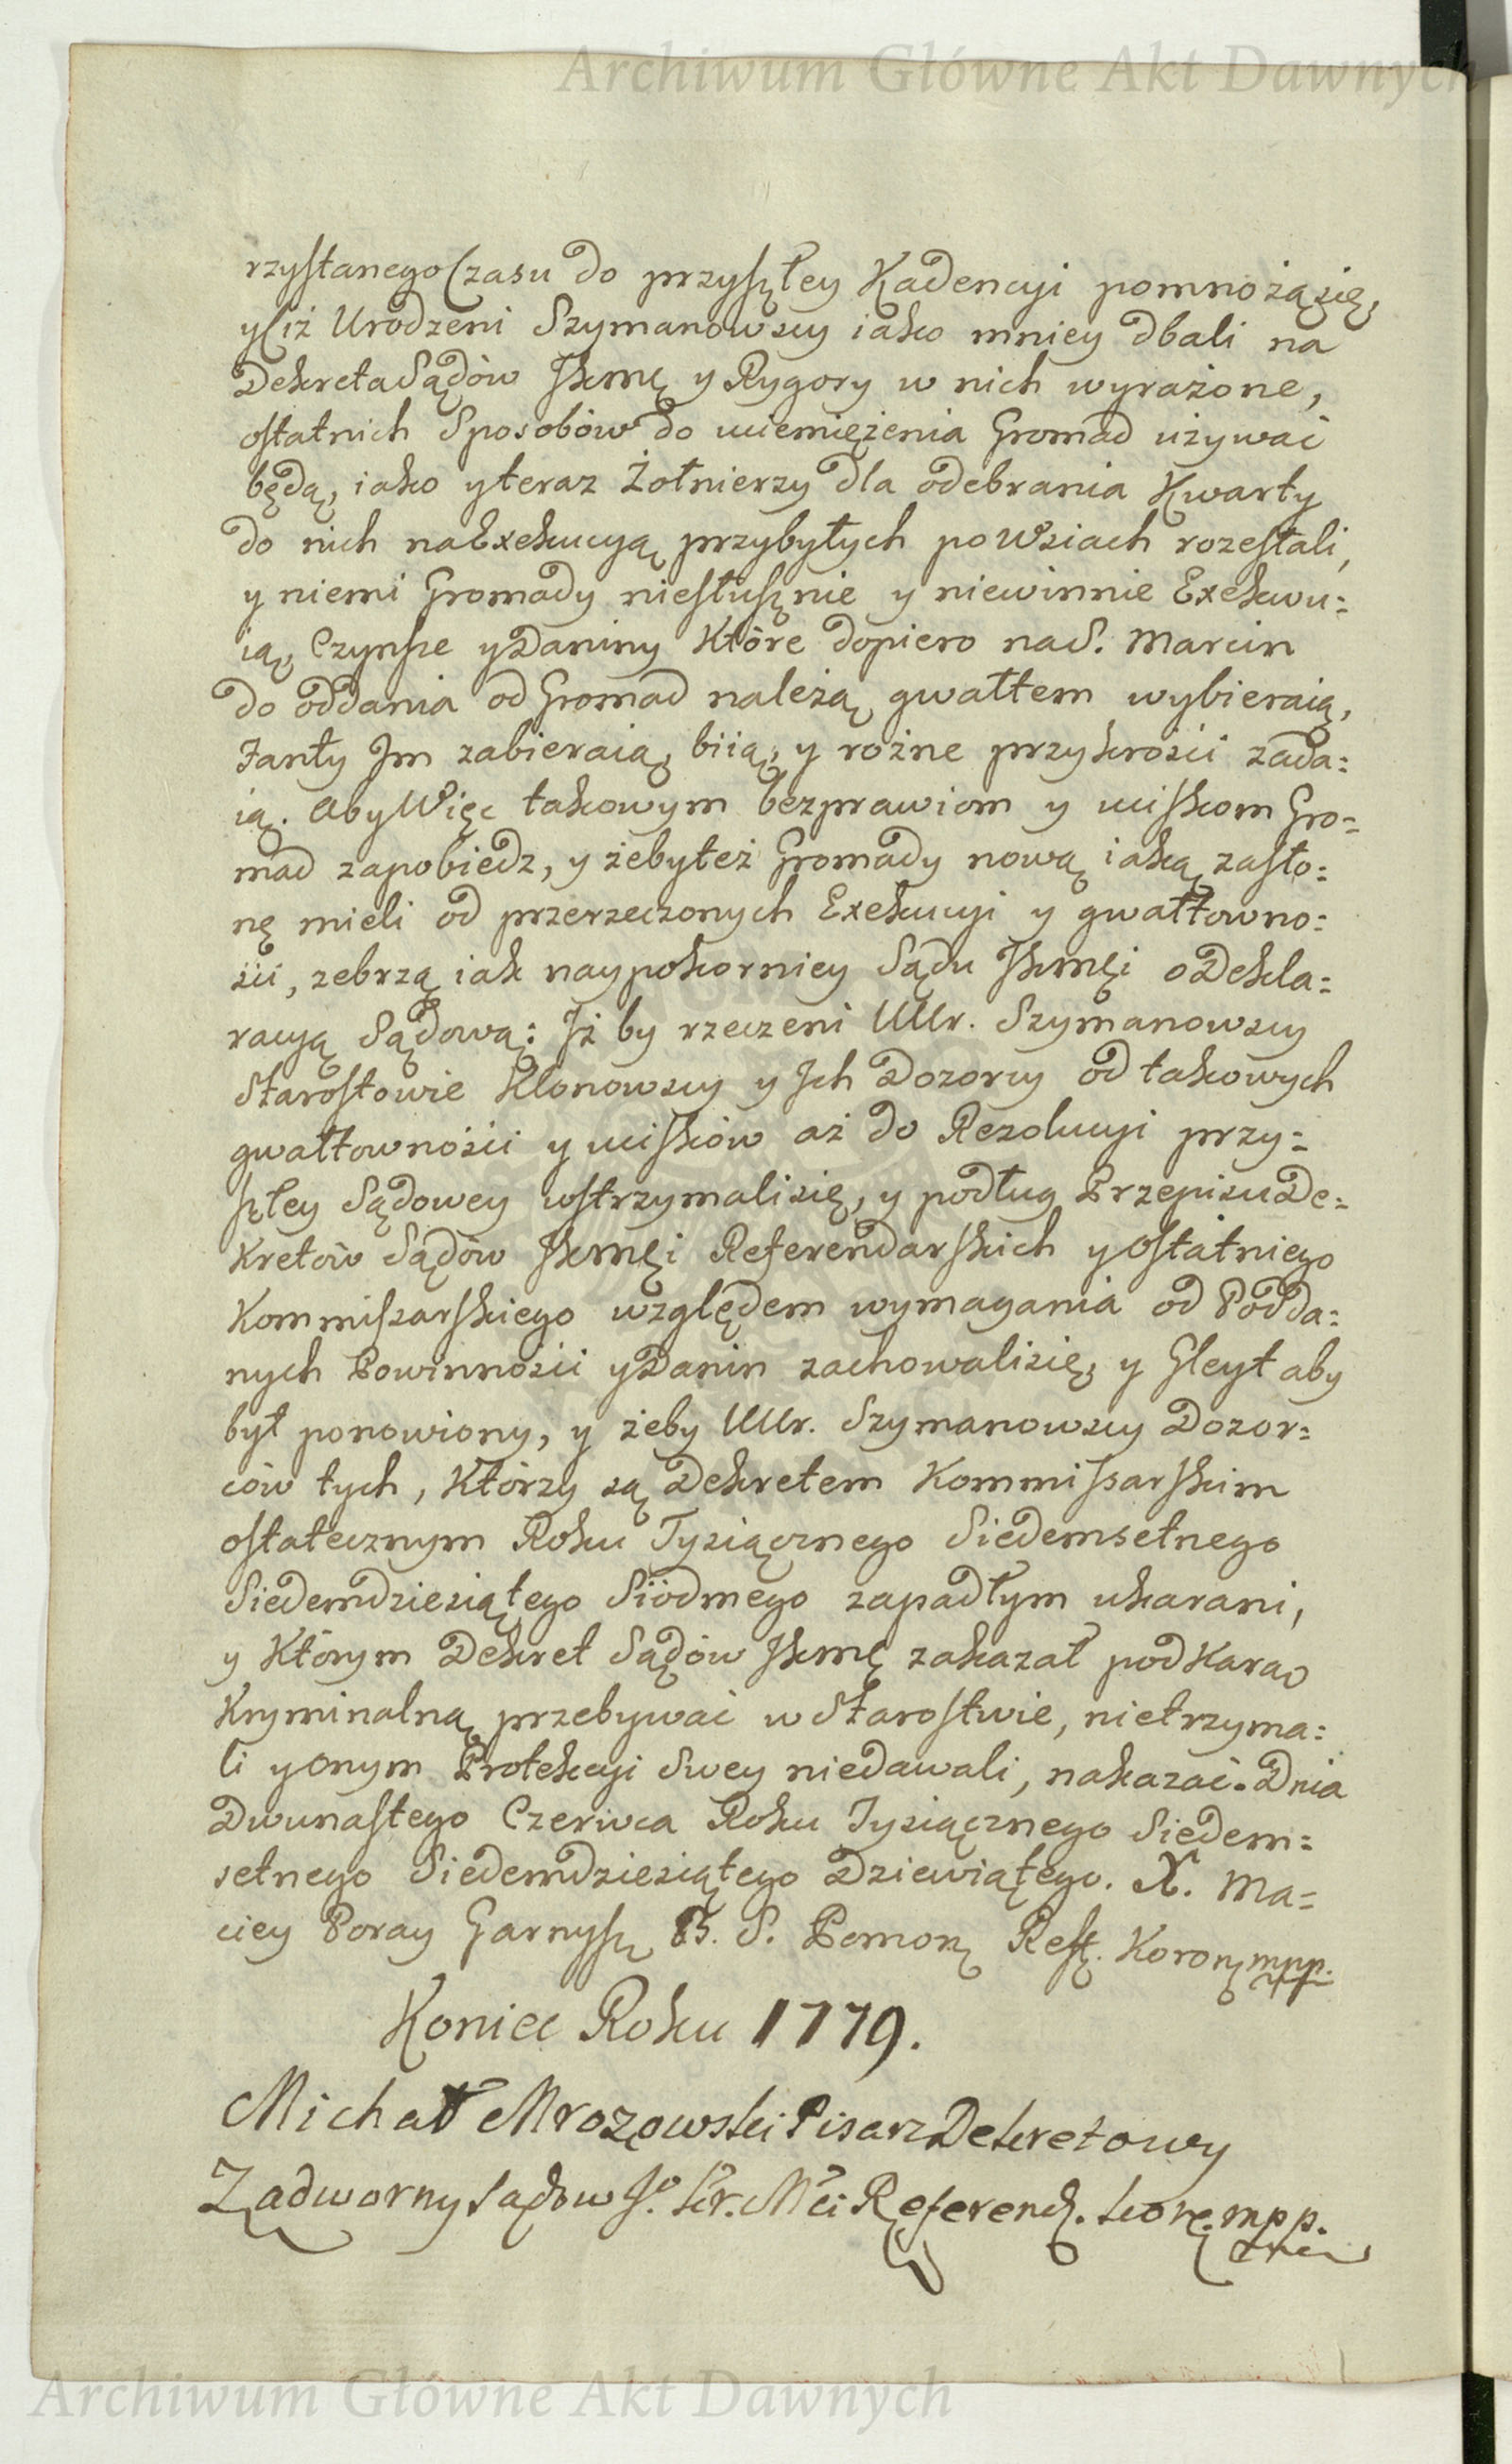 Archiwum Główne Akt Dawnych
rzystanego Czasu do przyszłey Kadencyi pomnożą się,
y iż Urodzeni Szymanowscy iako mniey dbali na
Dekreta Sądów Jkmę y Rygory w nich wyrażone,
ostatnich Sposobów do uciemiężenia Gromad używać
będą, iako y teraz Żołnierzy dla odebrania Kwarty
do nich na Exekucyą przybyłych po Wsiach rozesłali,
y niemi Gromady niesłusznie y niewinnie Exekwu:
ią, Czynsze y Daniny które dopiero na S. Marcin
do oddania od Gromad należą, gwałtem wybieraią,
Fanty Jm zabieraią, biią, y rożne przykrości zada:
ią. Aby Więc takowym bezprawiom y uciskom Gro=
mad zapobiedz, y żebyteż Gromady nową iaką zasło:
nę mieli od przerzeczonych Exekucyi y gwałtowno:
ści, żebrzą iak naypokorniey Sądu Jkmęi o Dekla:
racyą Sądową: Jż by rzeczeni UUr. Szymanowscy
Starostowie Klonowscy y Jch Dozorcy od takowych
gwałtowności y ucisków aż do Rezolucyi przy:
szłey Sądowey wstrzymali się, y podług Przepisu De:
kretów Sądów Jkmęi Referendarskich y ostatniego
Kommissarskiego względem wymagania od Podda:
nych Powinności y Danin zachowali się, y Gleyt aby
był ponowiony, y żeby UUr. Szymanowscy Dozor:
ców tych, którzy są Dekretem Kommissarskim
ostatecznym Roku Tysiącznego Siedemsetnego
Siedemdziesiątego Siódmego zapadłym ukarani,
y którym Dekret Sądów Jkmę zakazał pod Karą
Kryminalną przebywać w Starostwie, nietrzyma:
li y onym Protekcyi Swey niedawali, nakazać. Dnia
Dwunastego Czerwca Roku Tysiącznego Siedem:
setnego Siedemdziesiątego Dziewiątego. X. Ma=
ciey Poray Garnysz B. S. Pomorz Reff. Koronn mpp.
Koniec Roku 1779.
Michał Mrozowski Pisarz Dekretowy
Zadworny Sądow J. Kr. Mci Referend. kor. mpp.
Archiwum Główne Akt Dawnych